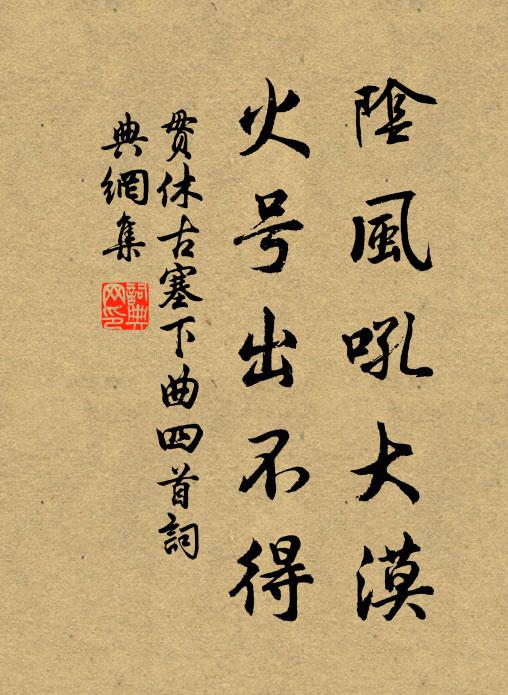 陰風吼大漠
火号出不得
貫休古塞下曲四首詞
典網集
詞典網印